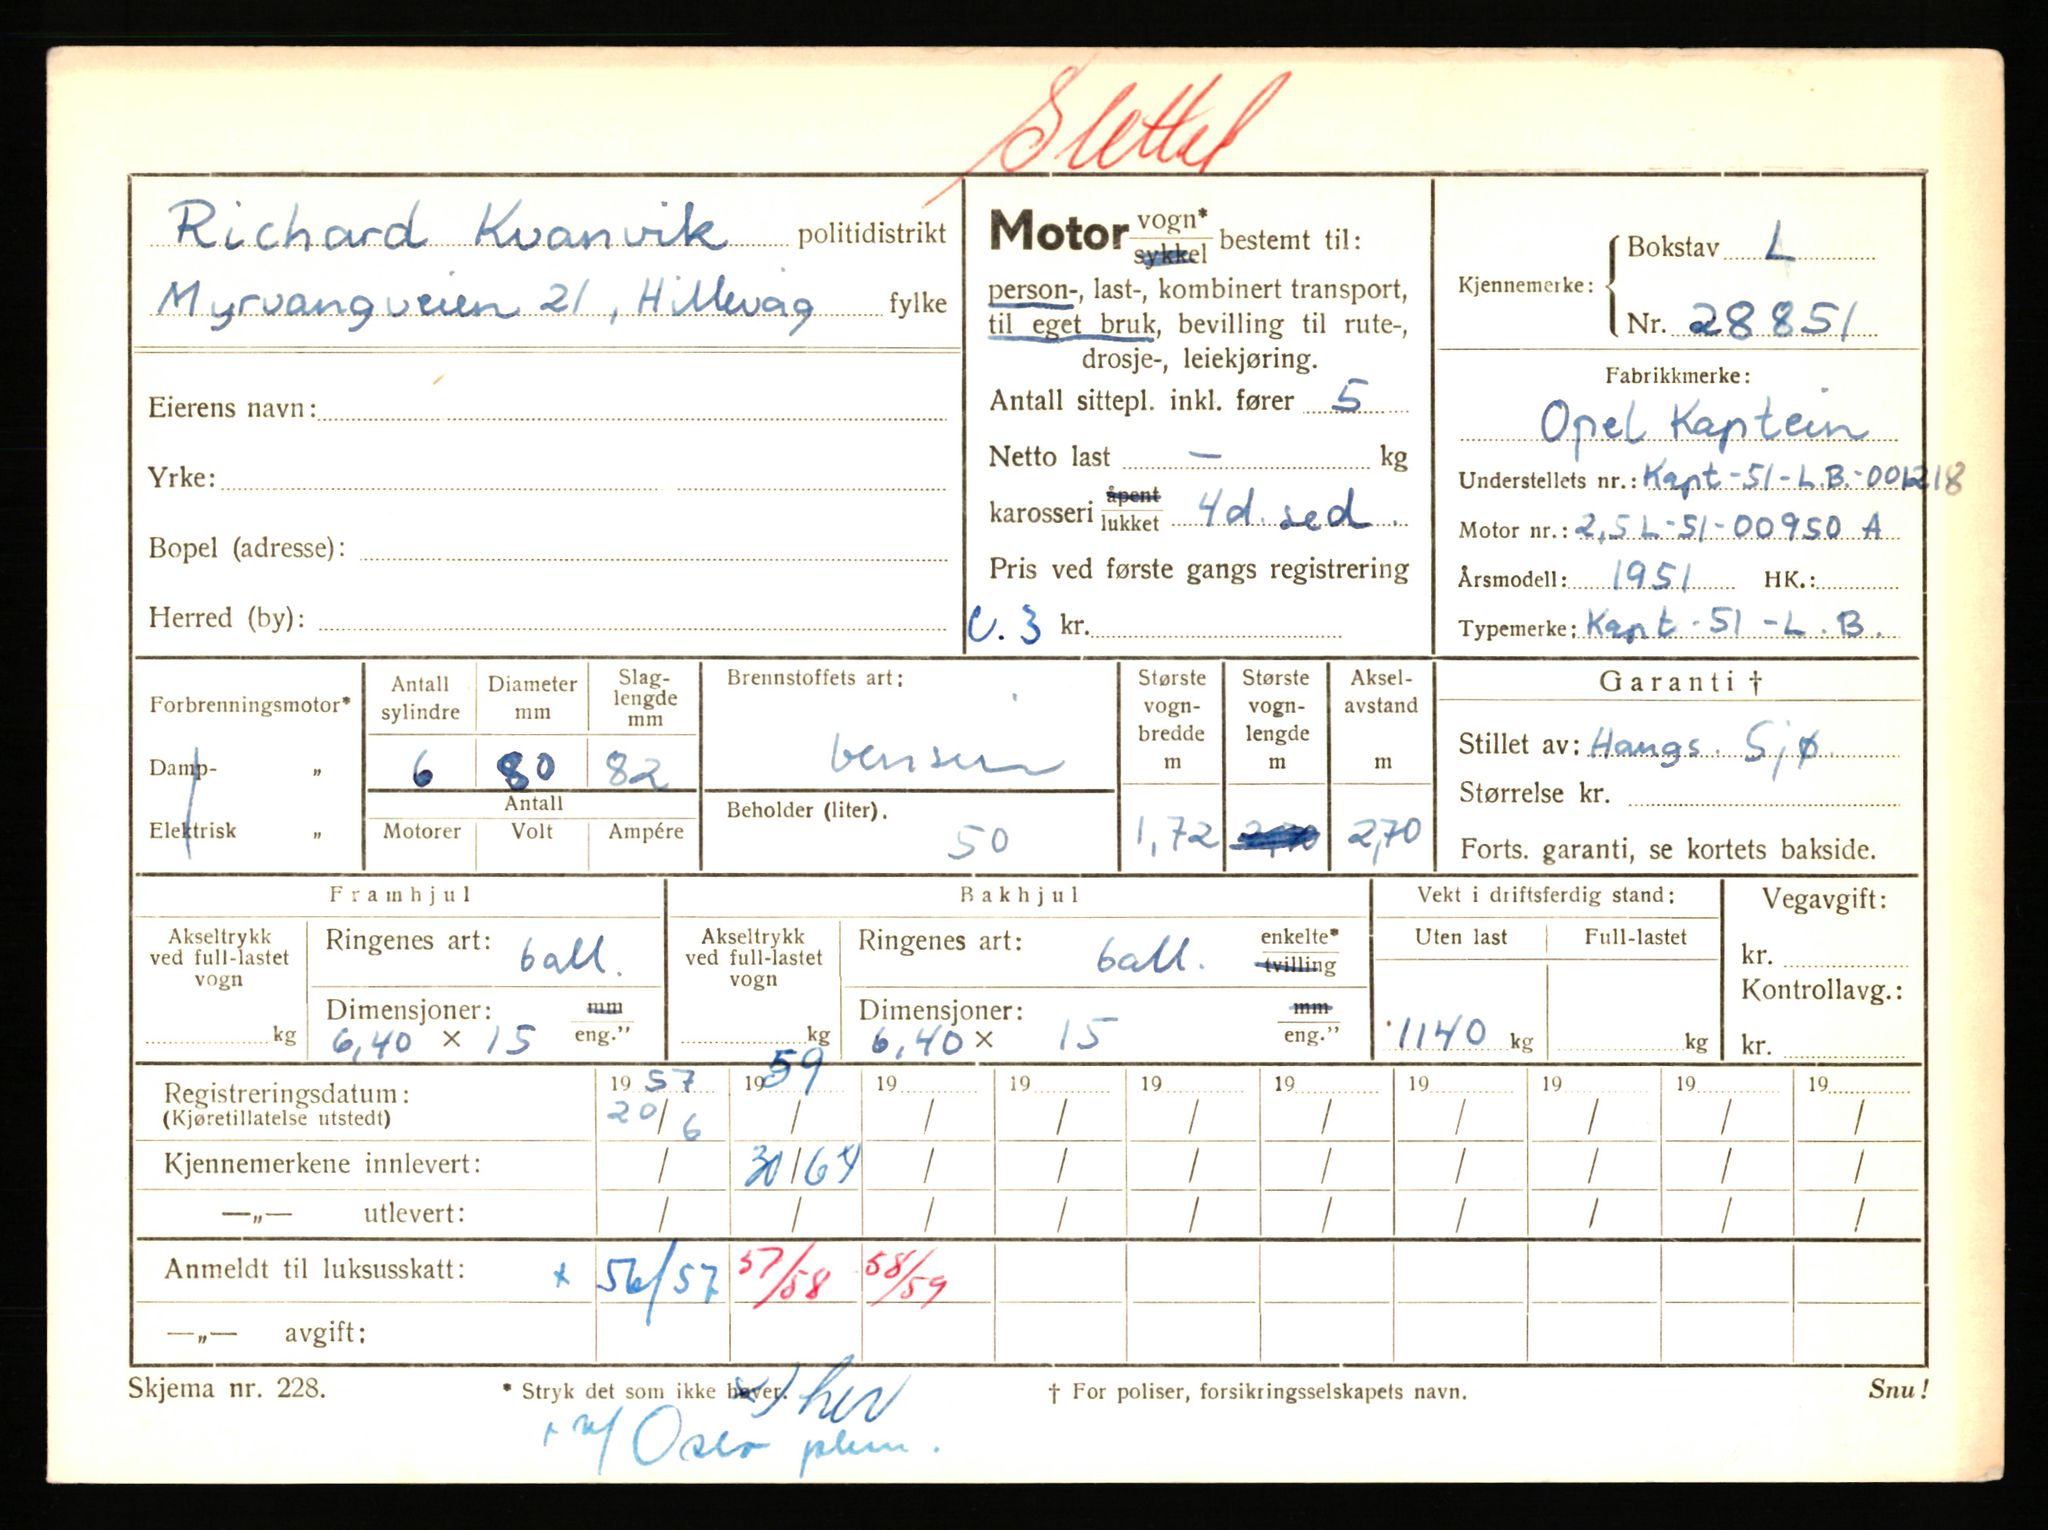 Slettet
Richard Kvanvik politidistrikt
Myrvangveien 21, Hillevåg fylke
Eierens navn:
Yrke:
Bopel (adresse):
Herred (by):
Motor vogn* sykkel bestemt til:
person-, last-, kombinert transport,
til eget bruk, bevilling til rute-,
drosje-, leiekjøring.
Antall sittepl. inkl. fører 5
Netto last — kg
karosseri åpent lukket 4d. sed.
Pris ved første gangs registrering
C. 3 kr.
Kjennemerke: Bokstav L
Nr. 28851
Fabrikkmerke:
Opel Kaptein
Understellets nr.: Kapt-51-L.B.-001218
Motor nr.: 2,5L-51-00950 A
Årsmodell: 1951 HK.:
Typemerke: Kapt-51-L.B.
Forbrenningsmotor*
Damp- „
Elektrisk „
Antall sylindre Diameter mm Slaglengde mm
6 80 82
Antall
Motorer Volt Ampére
Brennstoffets art:
bensin
Beholder (liter).
50
Største vogn-bredde m
1,72
Største vogn-lengde m
Aksel-avstand m
2,70
Garanti †
Stillet av: Haugs. Sjø
Størrelse kr.
Forts. garanti, se kortets bakside.
Framhjul
Akseltrykk ved full-lastet vogn
kg
Ringenes art: ball.
Dimensjoner: mm
6,40 × 15 eng.”
Bakhjul
Akseltrykk ved full-lastet vogn
kg
Ringenes art: ball. enkelte* tvilling
Dimensjoner: mm
6,40 × 15 eng.”
Vekt i driftsferdig stand:
Uten last Full-lastet
1140 kg kg
Vegavgift:
kr.
Kontrollavg.:
kr.
Registreringsdatum: 19 57 19 59 19 19 19 19 19 19 19 19
(Kjøretillatelse utstedt) 20/6 / / / / / / / / /
Kjennemerkene innlevert: / 30/6 / / / / / / / /
—„— utlevert: / / / / / / / / / /
Anmeldt til luksusskatt: x 56/57 57/58 58/59
—„— avgift:
Skjema nr. 228. * Stryk det som ikke høver. † For poliser, forsikringsselskapets navn. Snu!
Oslo